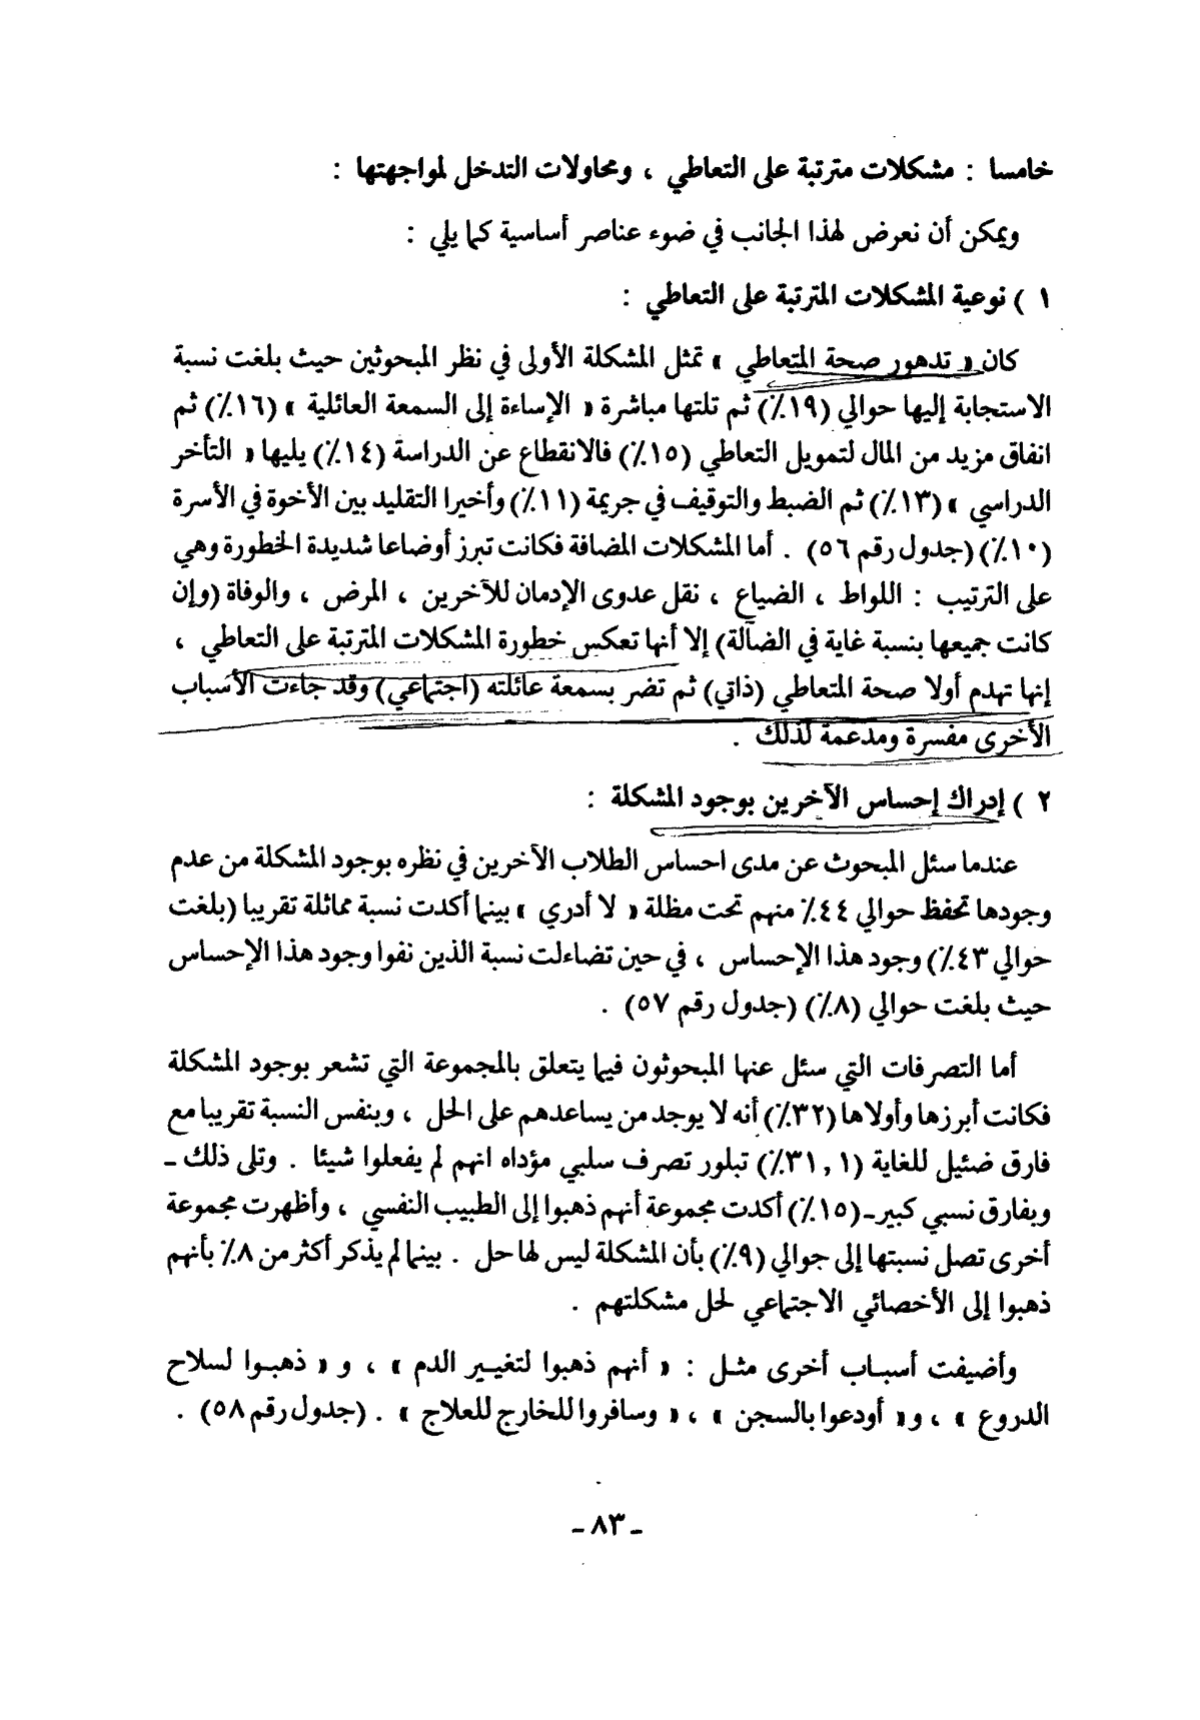 خامسا : مشكلات مترتبة على التعاطي ، ومحاولات التدخل لمواجهتها :
ويمكن أن نعرض لهذا الجانب في ضوء عناصر أساسية كما يلي :
١ ) نوعية المشكلات المترتبة على التعاطي :
كان « تدهور صحة المتعاطي » تمثل المشكلة الأولى في نظر المبحوثين حيث بلغت نسبة
الاستجابة إليها حوالي (١٩٪) ثم تلتها مباشرة « الإساءة إلى السمعة العائلية » (١٦٪) ثم
انفاق مزيد من المال لتمويل التعاطي (١٥٪) فالانقطاع عن الدراسة (١٤٪) يليها « التأخر
الدراسي » (١٣٪) ثم الضبط والتوقيف في جريمة (١١٪) وأخيرا التقليد بين الأخوة في الأسرة
(١٠٪) (جدول رقم ٥٦) . أما المشكلات المضافة فكانت تبرز أوضاعا شديدة الخطورة وهي
على الترتيب : اللواط ، الضياع ، نقل عدوى الإدمان للآخرين ، المرض ، والوفاة (وإن
كانت جميعها بنسبة غاية في الضآلة) إلا أنها تعكس خطورة المشكلات المترتبة على التعاطي ،
إنها تهدم أولا صحة المتعاطي (ذاتي) ثم تضر بسمعة عائلته (اجتماعي) وقد جاءت الأسباب
الأخرى مفسرة ومدعمة لذلك .
٢ ) إدراك إحساس الآخرين بوجود المشكلة :
عندما سئل المبحوث عن مدى احساس الطلاب الآخرين في نظره بوجود المشكلة من عدم
وجودها تحفظ حوالي ٤٤٪ منهم تحت مظلة « لا أدري » بينما أكدت نسبة مماثلة تقريبا (بلغت
حوالي ٤٣٪) وجود هذا الإحساس ، في حين تضاءلت نسبة الذين نفوا وجود هذا الإحساس
حيث بلغت حوالي (٨٪) (جدول رقم ٥٧) .
أما التصرفات التي سئل عنها المبحوثون فيما يتعلق بالمجموعة التي تشعر بوجود المشكلة
فكانت أبرزها وأولاها (٣٢٪) أنه لا يوجد من يساعدهم على الحل ، وبنفس النسبة تقريبا مع
فارق ضئيل للغاية (٣١,١٪) تبلور تصرف سلبي مؤداه انهم لم يفعلوا شيئا . وتلى ذلك ـ
وبفارق نسبي كبير ـ (١٥٪) أكدت مجموعة أنهم ذهبوا إلى الطبيب النفسي ، وأظهرت مجموعة
أخرى تصل نسبتها إلى جوالي (٩٪) بأن المشكلة ليس لها حل . بينما لم يذكر أكثر من ٨٪ بأنهم
ذهبوا إلى الأخصائي الاجتماعي لحل مشكلتهم .
وأضيفت أسباب أخرى مثل : « أنهم ذهبوا لتغيير الدم » ، و « ذهبوا لسلاح
الدروع » ، و « أودعوا بالسجن » ، « وسافروا للخارج للعلاج » . (جدول رقم ٥٨) .
ـ ٨٣ ـ